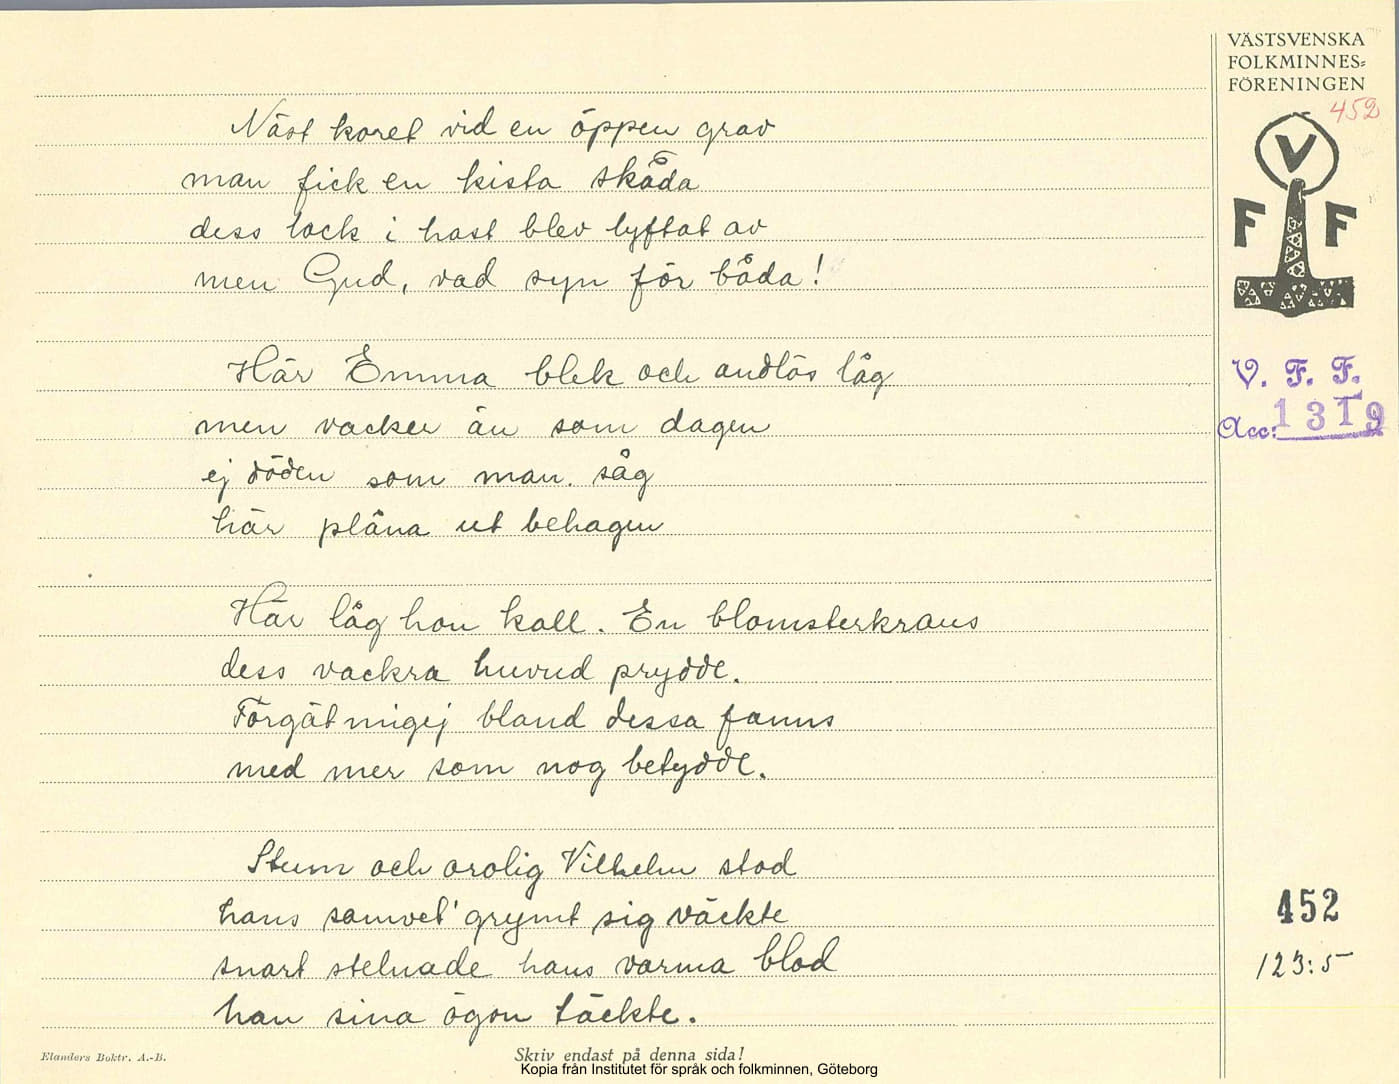 VÄSTSVENSKA
FOLKMINNES=
FÖRENINGEN
452
V
F F
V. F. F.
Acc: 1319
Näst koret vid en öppen grav
man fick en kista skåda
dess lock i hast blev lyftat av
men Gud, vad syn för båda!
Här Emma blek och andlös låg
men vacker än som dagen
ej döden som man såg
här plåna ut behagen
Här låg hon kall. En blomsterkrans
dess vackra huvud prydde.
Förgät migej bland dessa fanns
med mer som nog betydde.
Stum och orolig Vilhelm stod
hans samvet' grymt sig väckte
snart stelnade hans varma blod
han sina ögon täckte.
452
123:5
Elanders Boktr. A.-B.
Skriv endast på denna sida!
Kopia från Institutet för språk och folkminnen, Göteborg